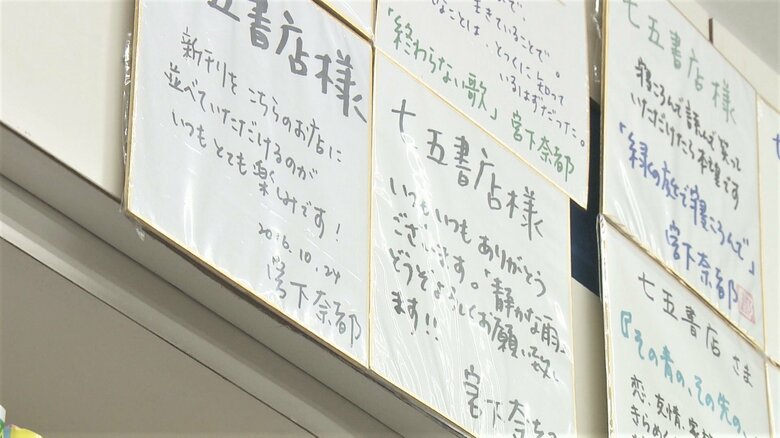 五書店様
新刊りを こちらのお店に
並べていただけるのが
いつも とても楽しみです!
2016.10.24
宮下奈都
生きていることで。
なことは、とっくに知って
いるはずだった。
「終わらない歌」宮下奈都
七五書店様
いつもいつも ありがとう
ございます。「静かな雨」
どうぞよろしくお願い致し
ます!!
宮下奈
七五書店様
寝ころんで読んで笑って
いただけたら本望です
「緑の庭で寝ころんで」
宮下奈都
七五書店 さま
『その青の、その先の、
恋、友情、家
きらめく